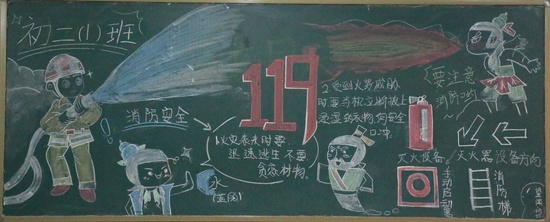 初二(1)班
消防安全
119
1.火灾袭来时要
迅速逃生不要
贪恋财物.
2受到火势威胁
时要当机立断披上
浸湿的衣物向安全
口冲.
要注意
消防哟~
水
(蓝图)
灭火设备
灭火器设备方向
手动启动器
消防梯